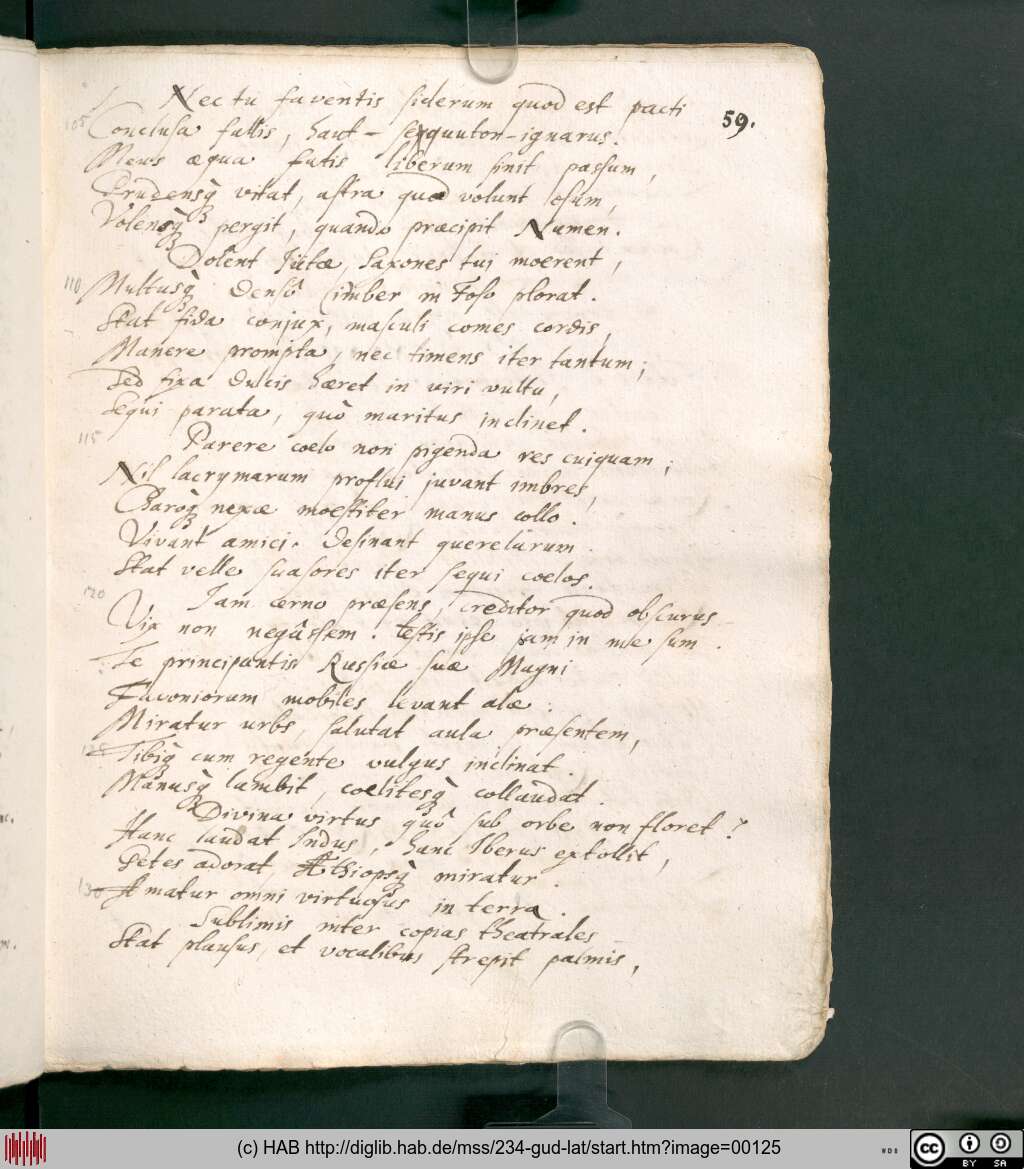 Nec tu faventis siderum quod est pacti
59.
105
Conclusa fallis, haut – sequutor – ignarus.
Mens æqua fatis liberum sinit passum,
Prudensq́ꝫ vitat, astra quod volunt osum,
Volensq́ꝫ pergit, quando præcipit Numen.
Dolent Jutæ, Saxones tui moerent,
110
Multusq́ꝫ densô imber in Foso plorat.
Stat fida conjux, masculi comes cordis,
Manere prompta, nec timens iter tantum;
Sed fixa dulcis hæret in viri vultu,
Sequi parata, quô maritus inclinet.
115
Parere coelo non pigenda res cuiquam;
Nil lacrymarum proflui juvant imbres,
Charoq́ꝫ nexæ moestiter manus collo.
Vivant amici. desinant querelarum.
Stat velle suasores iter sequi coelos.
120
Iam cerno præsens, creditor quod obscurus
Vix non negâssem. testis ipse jam in me sum.
Te principantis Russiæ suæ Magni
Favoniorum mobiles levant alæ.
Miratur urbs, salutat aula præsentem,
125
Tibiq́ꝫ cum regente vulgus inclinat.
Manusq́ꝫ lambit, coelitesq́ꝫ collaudat.
Divina virtus quô sub orbe non floret?
Hanc laudat Indus, hanc Iberus extollit,
Getes adorat, Æthiopsq́ꝫ miratur.
130
Amatur omni virtuosus in terra.
Sublimis inter copias theatrales
Stat plausus, et vocalibus strepit palmis,
(c) HAB http://diglib.hab.de/mss/234-gud-lat/start.htm?image=00125
WDB
cc
BY SA